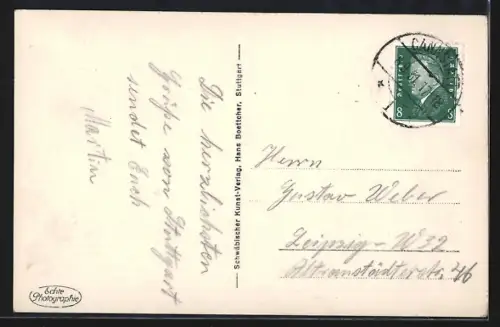 Die herzlichsten
Grüße von Stuttgart
sendet Euch
Martin
Schwäbischer Kunst-Verlag, Hans Boettcher, Stuttgart
Herrn
Gustav Weber
Leipzig-W32
Altranstädterstr. 46
Deutsches Reich
8 8
CANN
Echte
Photographie